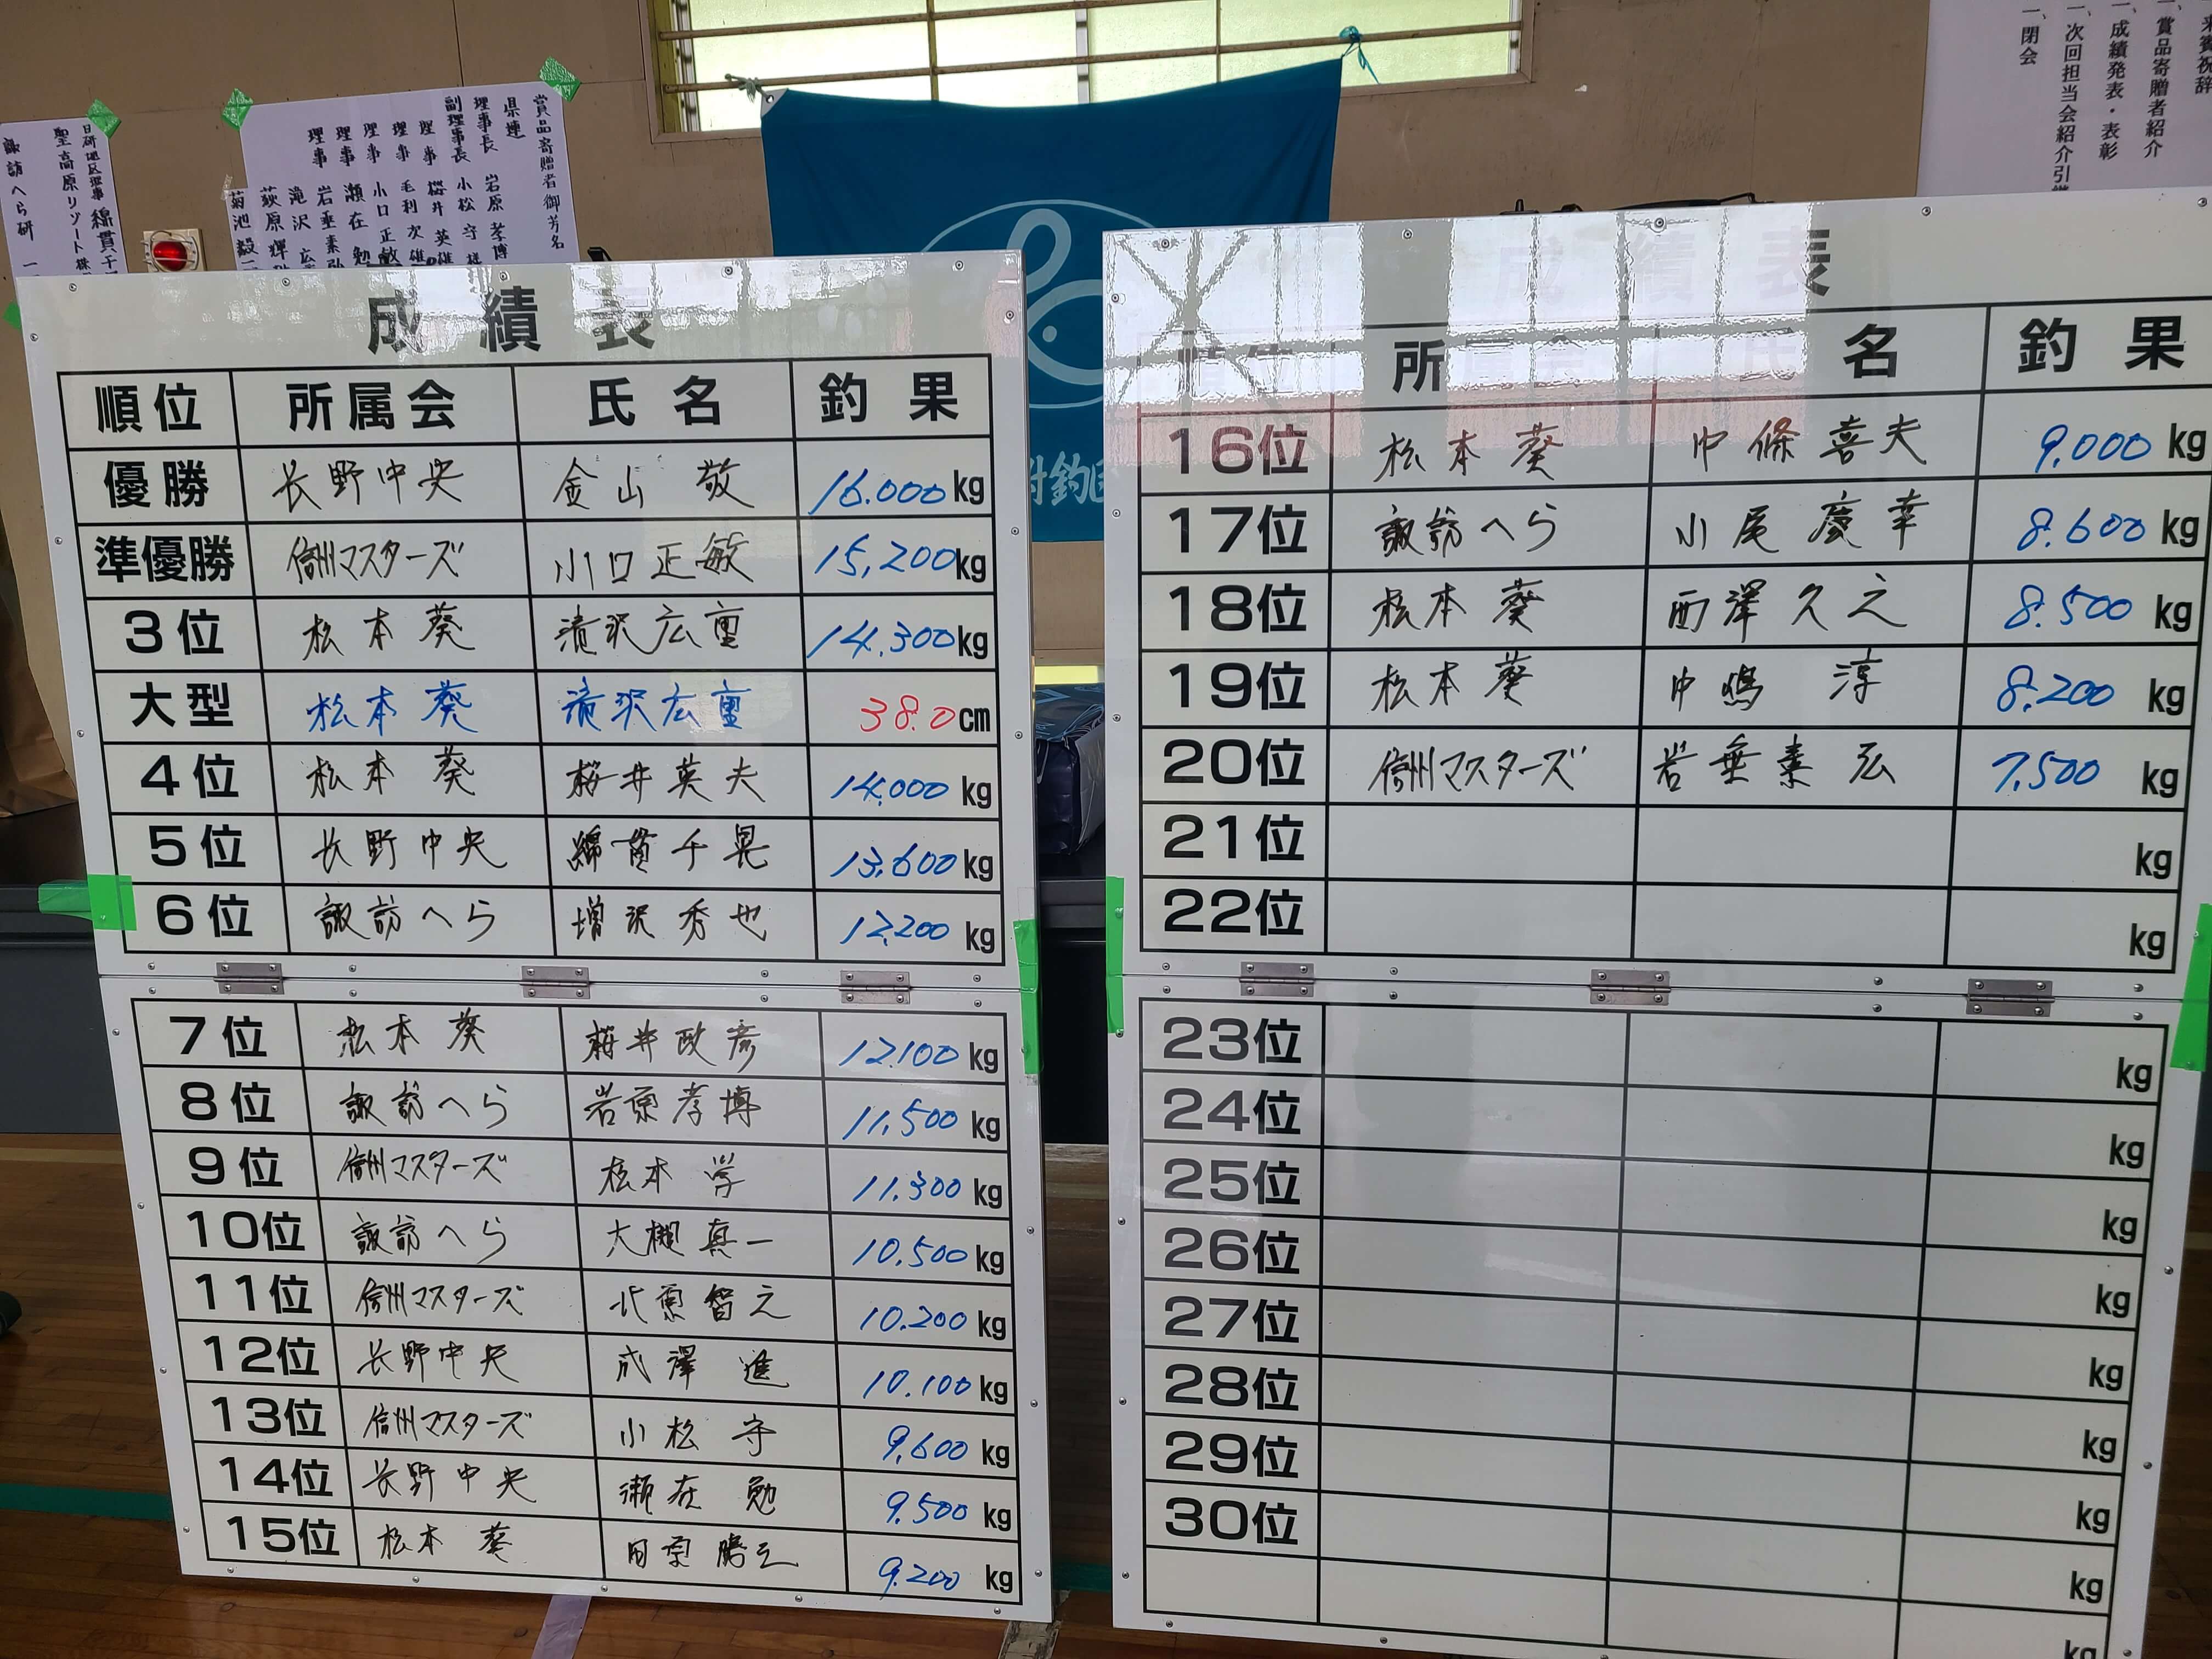 日研地区理事 綿貫千
聖高原リゾート 株
諏訪へら研 一
賞品寄贈者御芳名
県連
理事長 岩原 孝博
副理事長 小松 守 様
理事 桜井 英雄
理事 毛利 次雄
理事 小口 正敏
理事 瀬在 勉
理事 岩垂素弘
滝沢 広
荻原 輝
菊池 毅
来賓祝辞
一、賞品寄贈者紹介
一、成績発表・表彰
一、次回担当会紹介引
一、閉会
成績表
順位 所属会 氏名 釣果
優勝 長野中央 金山 敬 16.000kg
準優勝 信州マスターズ 小口正敏 15,200kg
3位 松本 葵 滝沢広重 14.300kg
大型 松本 葵 滝沢広重 38.0cm
4位 松本 葵 桜井英夫 14.000kg
5位 長野中央 綿貫千晃 13.600kg
6位 諏訪へら 増沢秀也 12.200kg
7位 松本 葵 桜井政彦 12.100kg
8位 諏訪へら 岩原孝博 11.500kg
9位 信州マスターズ 松本 学 11.300kg
10位 諏訪へら 大槻真一 10.500kg
11位 信州マスターズ 北原智之 10.200kg
12位 長野中央 成澤 進 10.100kg
13位 信州マスターズ 小松 守 9.600kg
14位 長野中央 瀬在 勉 9.500kg
15位 松本 葵 田原勝之 9.200kg
成績表
順位 所属会 氏名 釣果
16位 松本 葵 中條喜夫 9.000kg
17位 諏訪へら 小尾慶幸 8.600kg
18位 松本 葵 西澤久之 8.500kg
19位 松本 葵 中嶋 淳 8.200kg
20位 信州マスターズ 岩垂素弘 7.500kg
21位 kg
22位 kg
23位 kg
24位 kg
25位 kg
26位 kg
27位 kg
28位 kg
29位 kg
30位 kg
kg